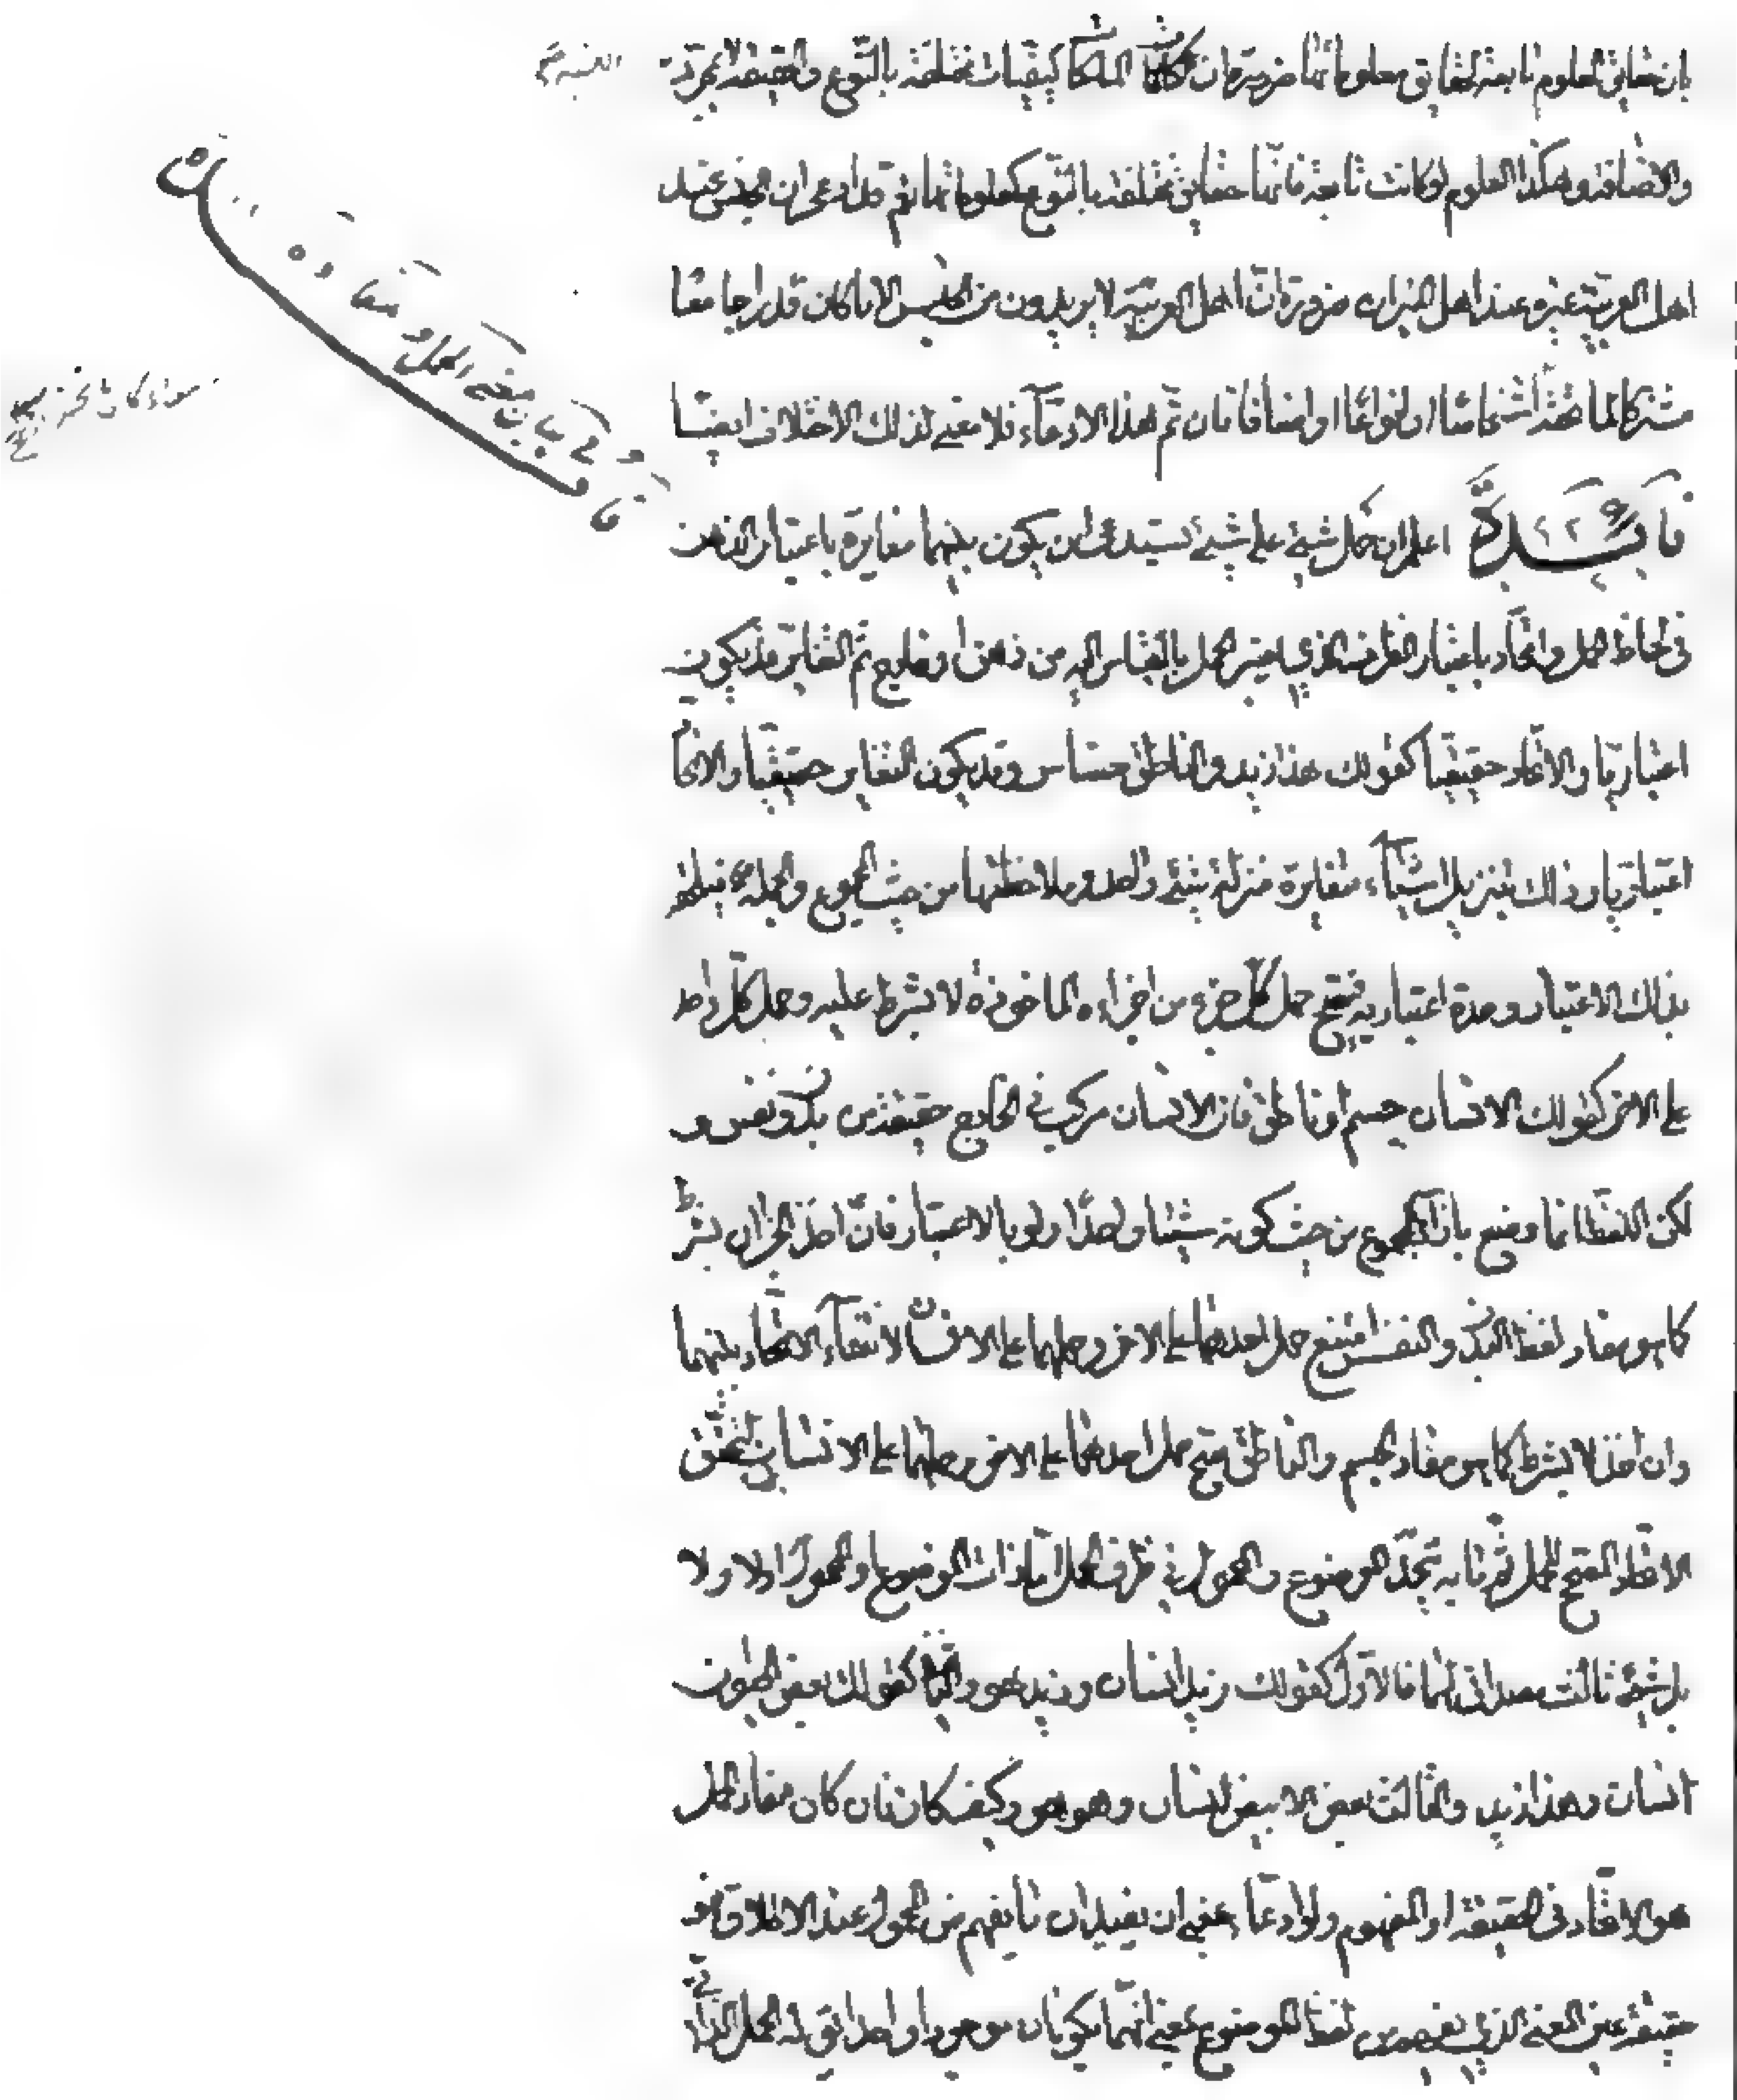 بان حقايق العلوم تابعة لحقايق معلوماتها ضرورة ان الملكات كيفيات مختلفة بالنوع والحقيقة لا بمجرد
النسبة
والاضافة وهكذا العلوم لو كانت تابعة فانها حقايق مختلفة بالنوع كمعلوماتها ثم قد ادعى ان الجنس عند
اهل العربية غيره عند اهل الميزان ضرورة ان اهل العربية لا يريدون من الجنس الا ما كان قدرا جامعا
مشتركا لما تحته اشخاصا او انواعا او اصنافا فان تم هذا الادعاء فلا معنى لذلك الاختلاف ايضا
فائدة في بيان معنى الحمل ومفاده
فائدة اعلم ان حمل شيء على شيء يستدعى ان يكون بينهما مغايرة باعتبار الذهن
في لحاظ الحمل واتحاد باعتبار الظرف الذي يعتبر الحمل بالقياس اليه من ذهن او خارج ثم التغاير قد يكون
اعتباريا والاتحاد حقيقيا كقولك هذا زيد والناطق حساس وقد يكون التغاير حقيقيا والاتحاد
اعتباريا وذلك بتنزيل اشياء متغايرة منزلة شيء واحد وملاحظتها من حيث المجموع والجملة فيلحقه
بذلك الاعتبار وحدة اعتبارية فيصح حمل كل جزء من اجزائه الماخوذة لا بشرط عليه وحمل كل واحد
على الاخر كقولك الانسان جسم او ناطق فان الانسان مركب في الخارج حقيقة من بدن ونفس و
لكن اللفظ انما وضع بازاء المجموع من حيث كونه شيئا واحدا ولو بالاعتبار فان اخذ الجزان بشرط لا
كما هو مفاد لفظ البدن والنفس امتنع حمل احدهما على الاخر وحملهما على الانسان لانتفاء الاتحاد بينهما
وان اخذا لا بشرط كما هو مفاد الجسم والناطق صح حمل احدهما على الاخر وحملهما على الانسان لتحقق
الاتحاد المصحح للحمل ثم ما به يتحد الموضوع والمحمول في ظرف الحمل اما ذات الموضوع او المحمول اولا ولا
بل شيء ثالث يصدقان عليه فالاول كقولك زيد انسان وزيد هو والثاني كقولك بعض الحيوان
انسان وهذا زيد والثالث بعض الابيض انسان وهو هو وكيف كان فان كان مفاد الحمل
هو الاتحاد في الحقيقة او المفهوم ولو ادعاء بمعنى ان يفيد ان ما يفهم من المحمول عند الاطلاق هو
حقيقة عين المعنى الذي يفهم من لفظ الموضوع بمعنى انهما يكونان موجودا واحدا يق له الحمل الذاتي